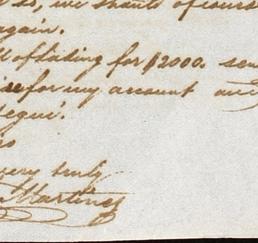 so, we shall of course
again.
of lading for $2000. sen
for my account
segui.
very truly
Martinez